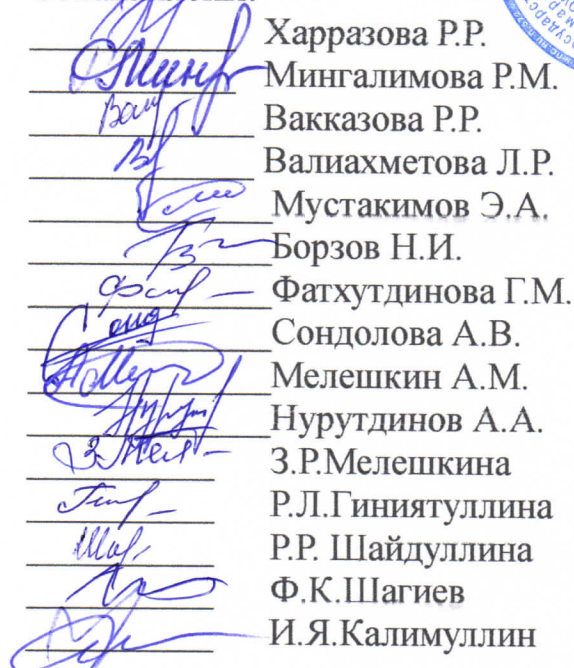 Харразова Р.Р.
Мингалимова Р.М.
Вакказова Р.Р.
Валиахметова Л.Р.
Мустакимов Э.А.
Борзов Н.И.
Фатхутдинова Г.М.
Сондолова А.В.
Мелешкин А.М.
Нурутдинов А.А.
З.Р.Мелешкина
Р.Л.Гиниятуллина
Р.Р. Шайдуллина
Ф.К.Шагиев
И.Я.Калимуллин